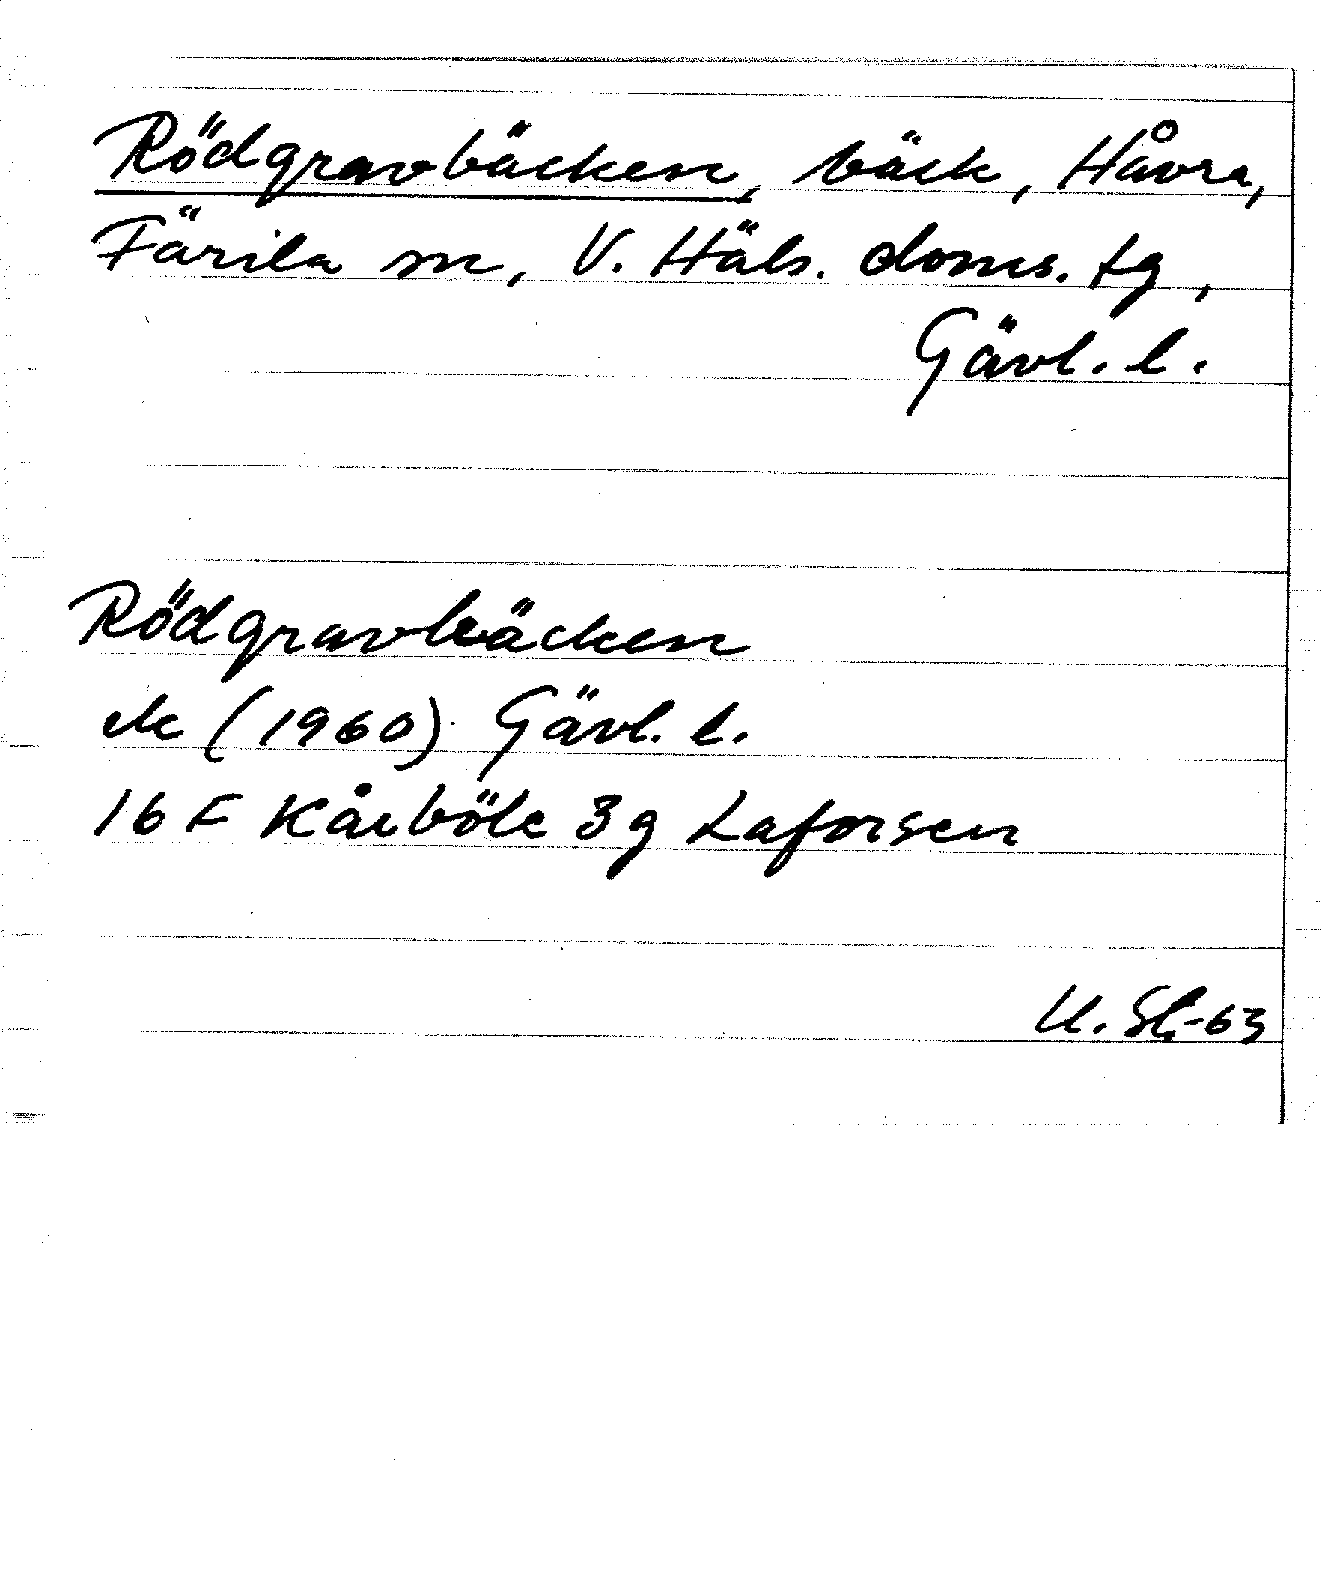 Rödgravbäcken, bäck, Håvra,
Färila sn, V. Häls. doms. tg,
Gävl. l.
Rödgravbäcken
ek (1960) Gävl. l.
16 F Kårböle 3g Laforsen
U. 63